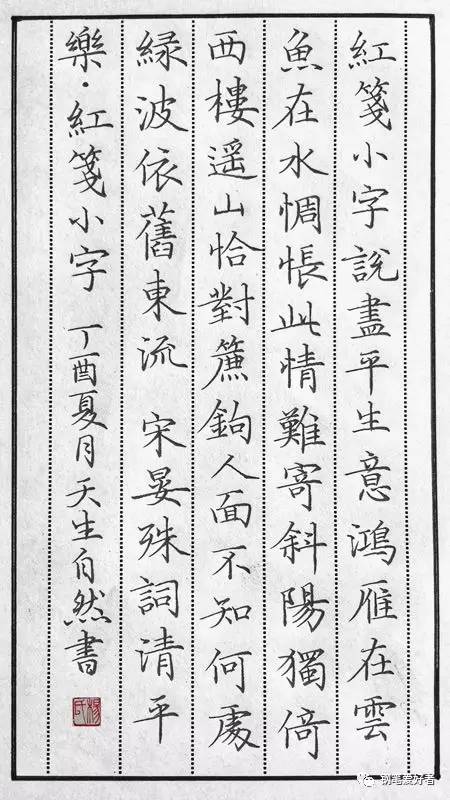 紅箋小字説盡平生意鴻雁在雲
魚在水惆悵此情難寄斜陽獨倚
西樓遥山恰對簾鉤人面不知何處
緑波依舊東流 宋晏殊詞清平
樂·紅箋小字 丁酉夏月天生自然書
钢笔爱好者